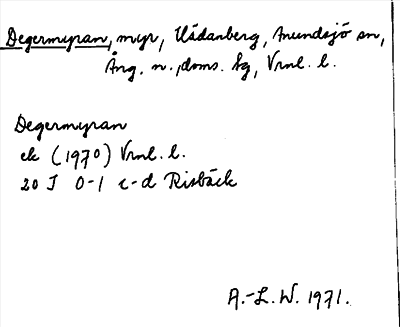 Degermyran, myr, Hädanberg, Anundsjö sn,
Ång. n., doms. hg, Vrnl. l.
Degermyran
ek (1970) Vrnl. l.
20 J 0-1 c-d Risbäck
A.-L. W. 1971.